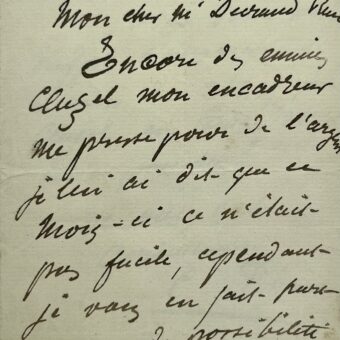 Mon cher Mr Durand Rue
Encore des ennuis
Cluzel mon encadreur
me presse pour de l'argen
je lui ai dit que ce
mois-ci ce n'était
pas facile, cependant
je vous en fait part
possibilité